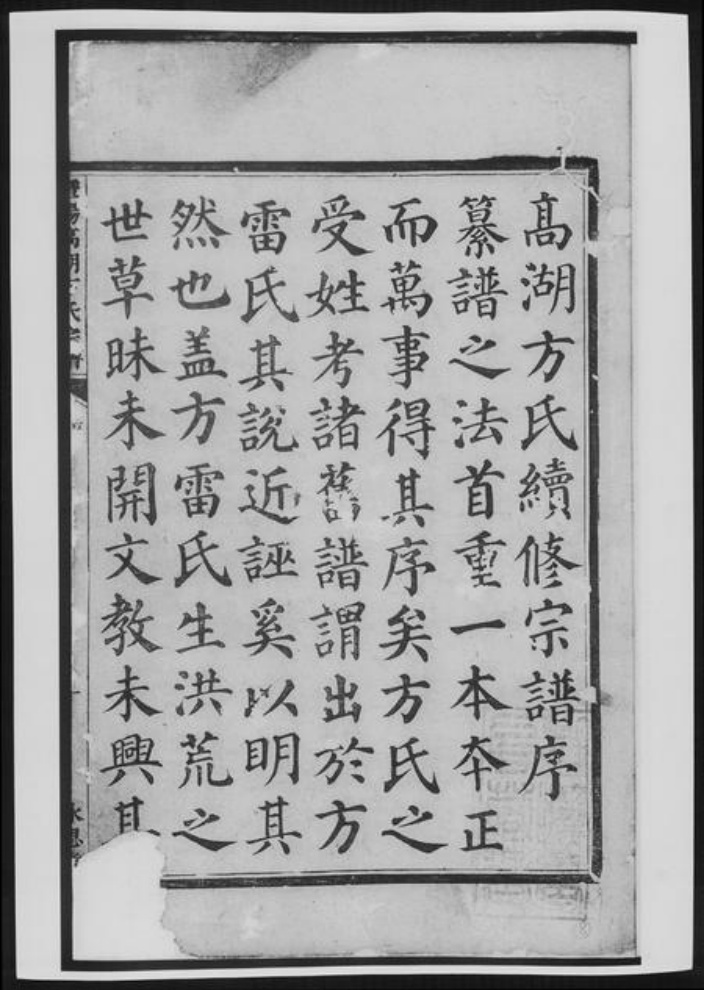 高湖方氏續修宗譜序
纂譜之法首重一本夲正
而萬事得其序矣方氏之
受姓考諸舊譜謂出於方
雷氏其説近誣奚以明其
然也盖方雷氏生洪荒之
世草昧未開文教未興其
高湖方氏宗譜